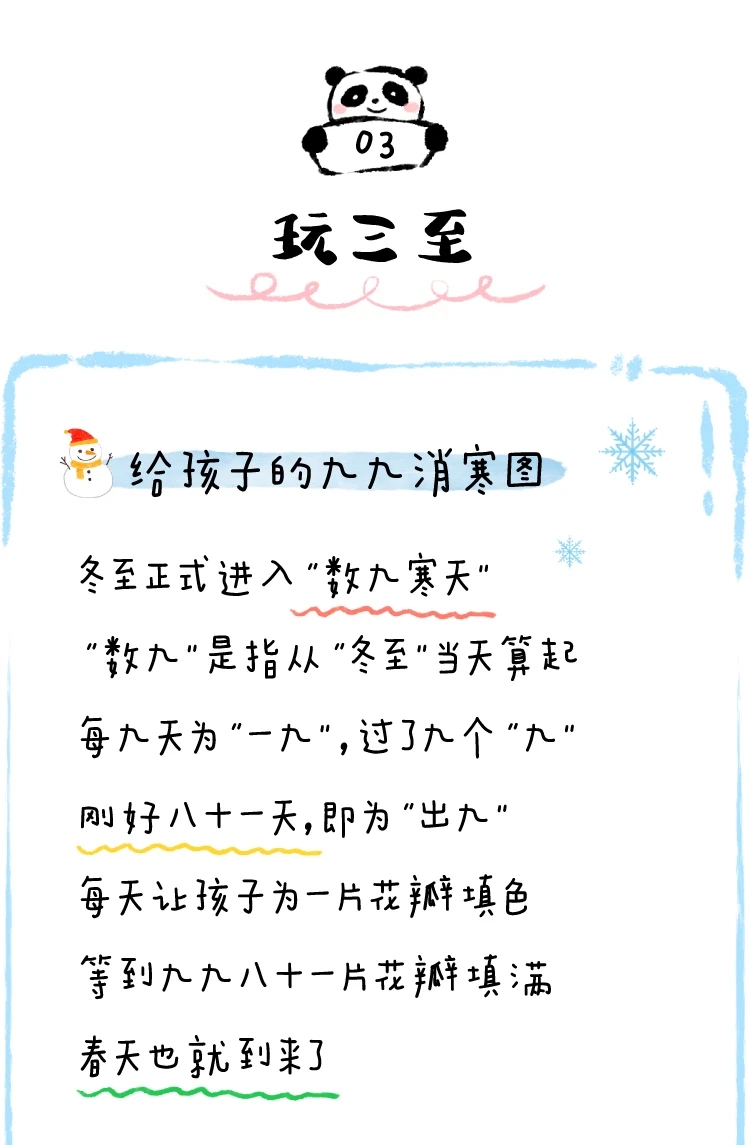 03
玩三至
给孩子的九九消寒图
冬至正式进入"数九寒天"
"数九"是指从"冬至"当天算起
每九天为"一九",过了九个"九"
刚好八十一天,即为"出九"
每天让孩子为一片花瓣填色
等到九九八十一片花瓣填满
春天也就到来了